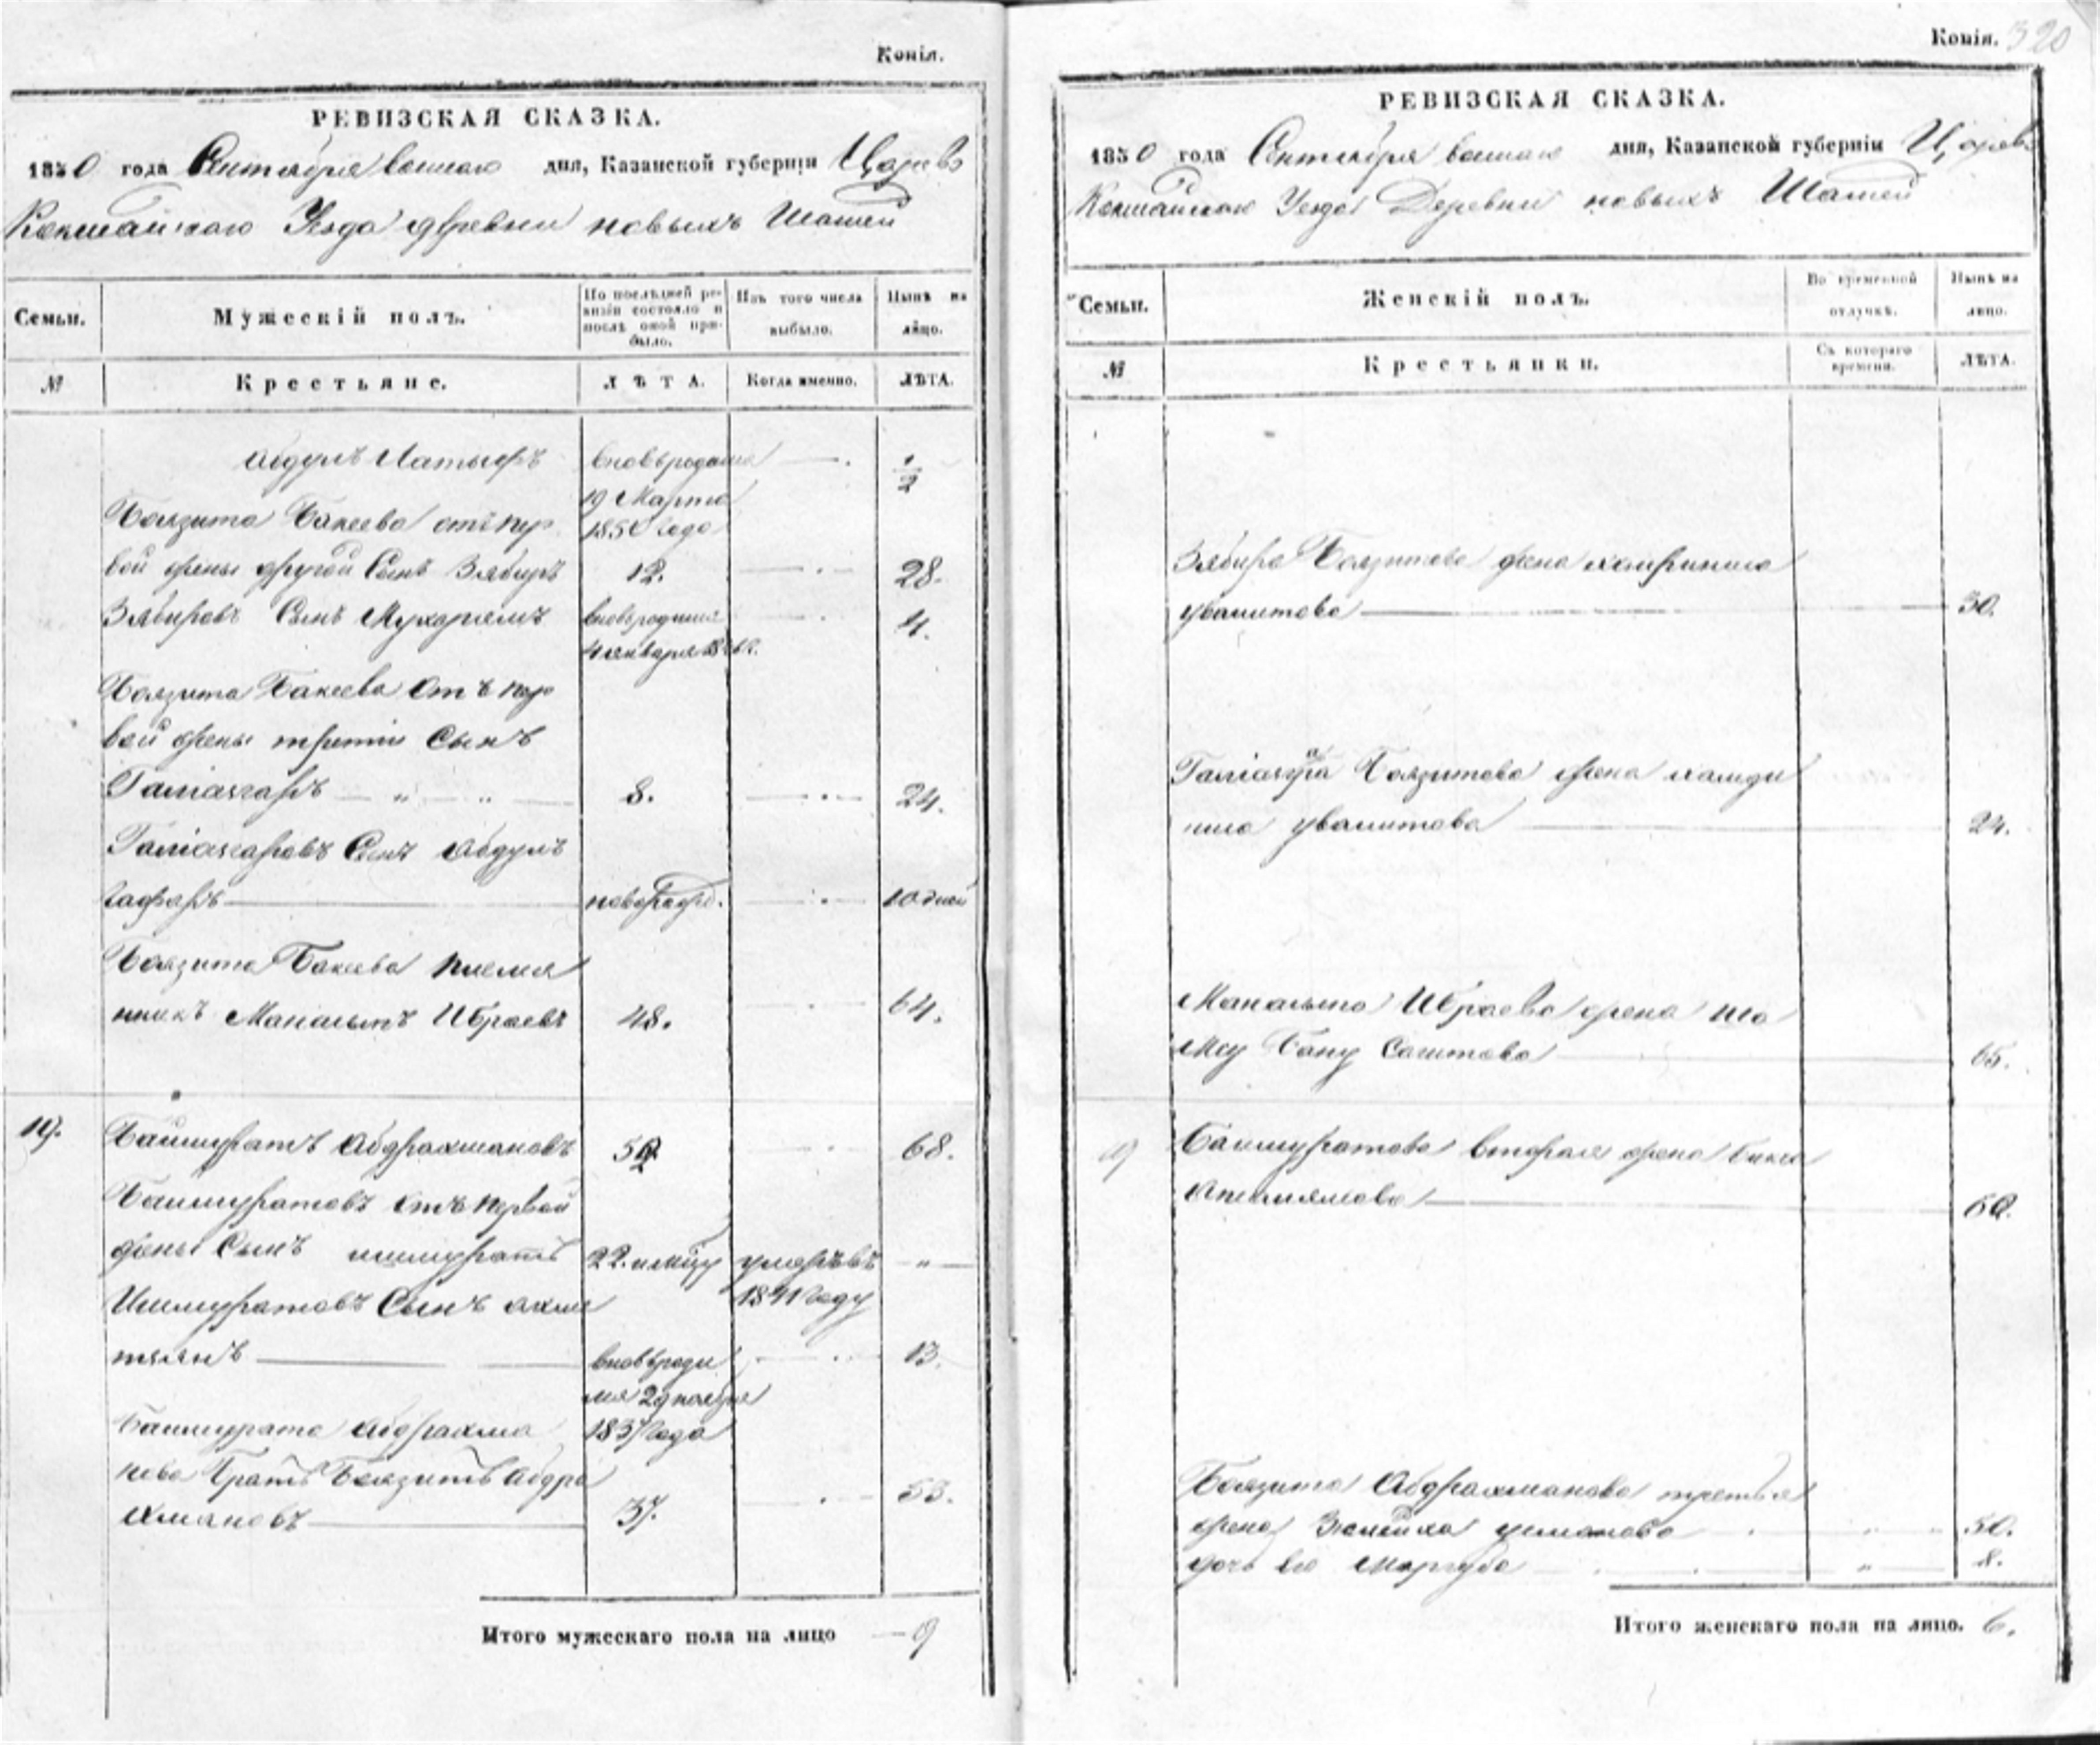 Копія.
РЕВИЗСКАЯ СКАЗКА.
1850 года Сентября дня, Казанской губерніи Царево
Кокшайскаго Уезда деревни новыхъ Шашей
Семьи.
Мужескій полъ.
По послѣдней ревизіи состояло и послѣ оной прибыло.
Изъ того числа выбыло.
Нынѣ на лицо.
№
Крестьяне.
ЛѢТА.
Когда именно.
ЛѢТА.
Абдулъ Латыфъ вновьродился 1/2
19 Марта
Боязита Бакеева отъ пер 1850 года
вой жены другой Сынъ Зябиръ 12. 28.
Зябировъ Сынъ Мухарямъ вновьродился 4.
4 января
Боязита Бакеева Отъ пер
вой жены третіи Сынъ
Галіасгаръ 8. 24.
Галіасгаровъ Сынъ Абдулъ
Гафаръ новорожд. 10 дней
Боязита Бакеева племя
никъ Манасыпъ Ибраевъ 48. 64.
19. Баимуратъ Абдрахмановъ 52 68.
Баимуратовъ отъ первой
жены Сынъ ишмуратъ 22. умеръ въ „
Ишмуратовъ Сынъ ахме 1841 году
тзянъ вновьроди 13.
лся 29 ноября
Баимурата Абдрахма 1837 года
нова Братъ Боязитъ Абдра
хмановъ 37. 53.
Итого мужескаго пола на лицо 9
Копія. 320
РЕВИЗСКАЯ СКАЗКА.
1850 года Сентября дня, Казанской губерніи Царево
Кокшайскаго Уезда Деревни новыхъ Шашей
Семьи.
Женскій полъ.
Во временной отлучкѣ.
Нынѣ на лицо.
№
Крестьянки.
Съ котораго времени.
ЛѢТА.
Зябира Боязитова жена
увалитова 30.
Галіасгара Боязитова жена халиди
увалитова 24.
Манасыпа Ибраева жена Ша
мсу Бану Сагитова 65.
19 Баимуратова вторая жена Бике
60.
Боязита Абдрахманова третья
жена Зюлейха усманова „ 50.
дочь Его Маргуба „ 8.
Итого женскаго пола на лицо. 6.